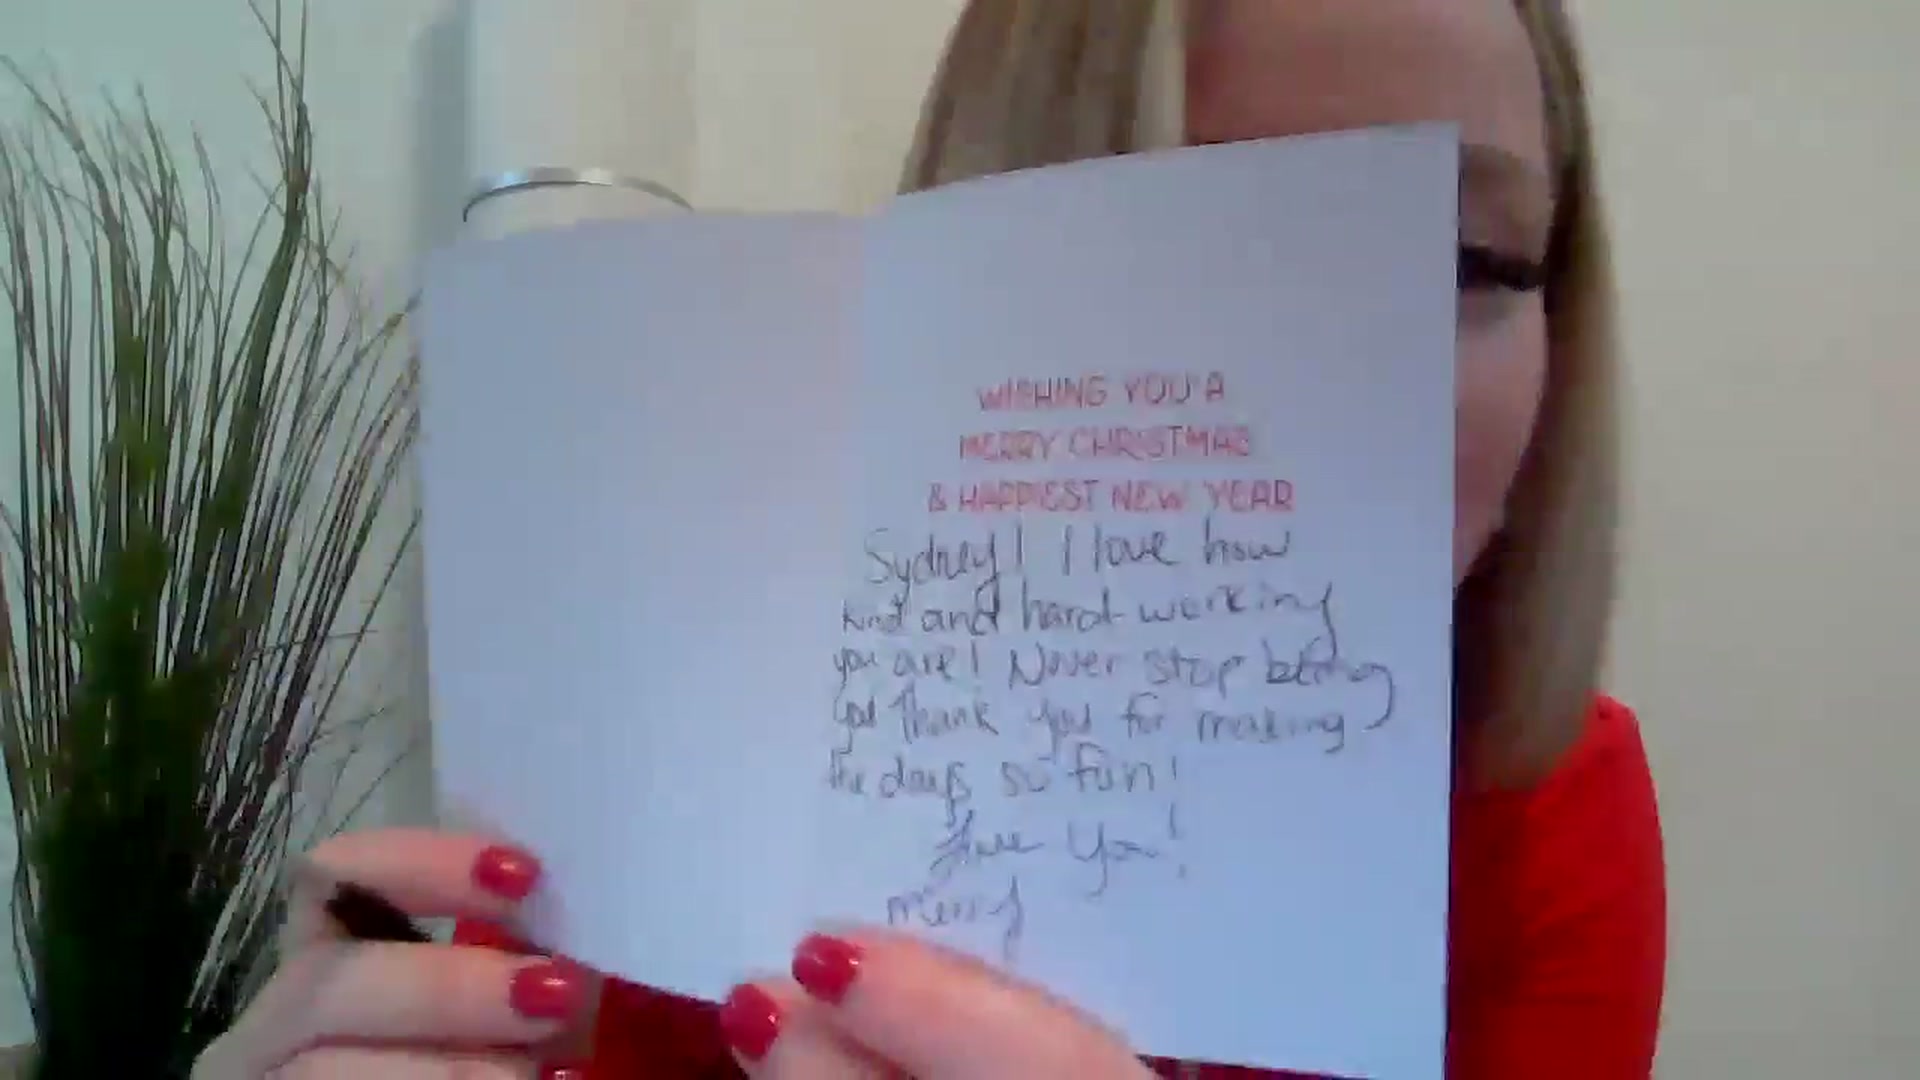 WISHING YOU A
MERRY CHRISTMAS
& HAPPIEST NEW YEAR
Sydney! I love how
kind and hard-working
you are! Never stop being
you thank you for making
the days so fun!
Love You!
Merry